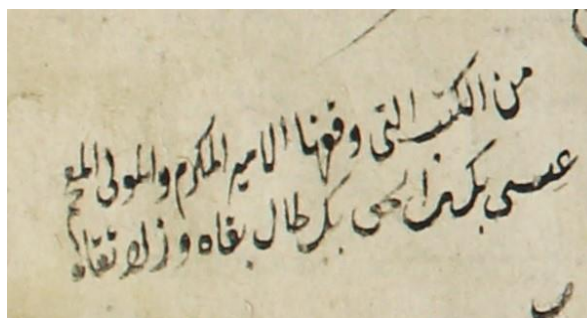 من الكتب التى وقفها الامير المكرم والمولى المفخم
عيسى بك بن اسحق بك طال بقاه و زاد تقاه